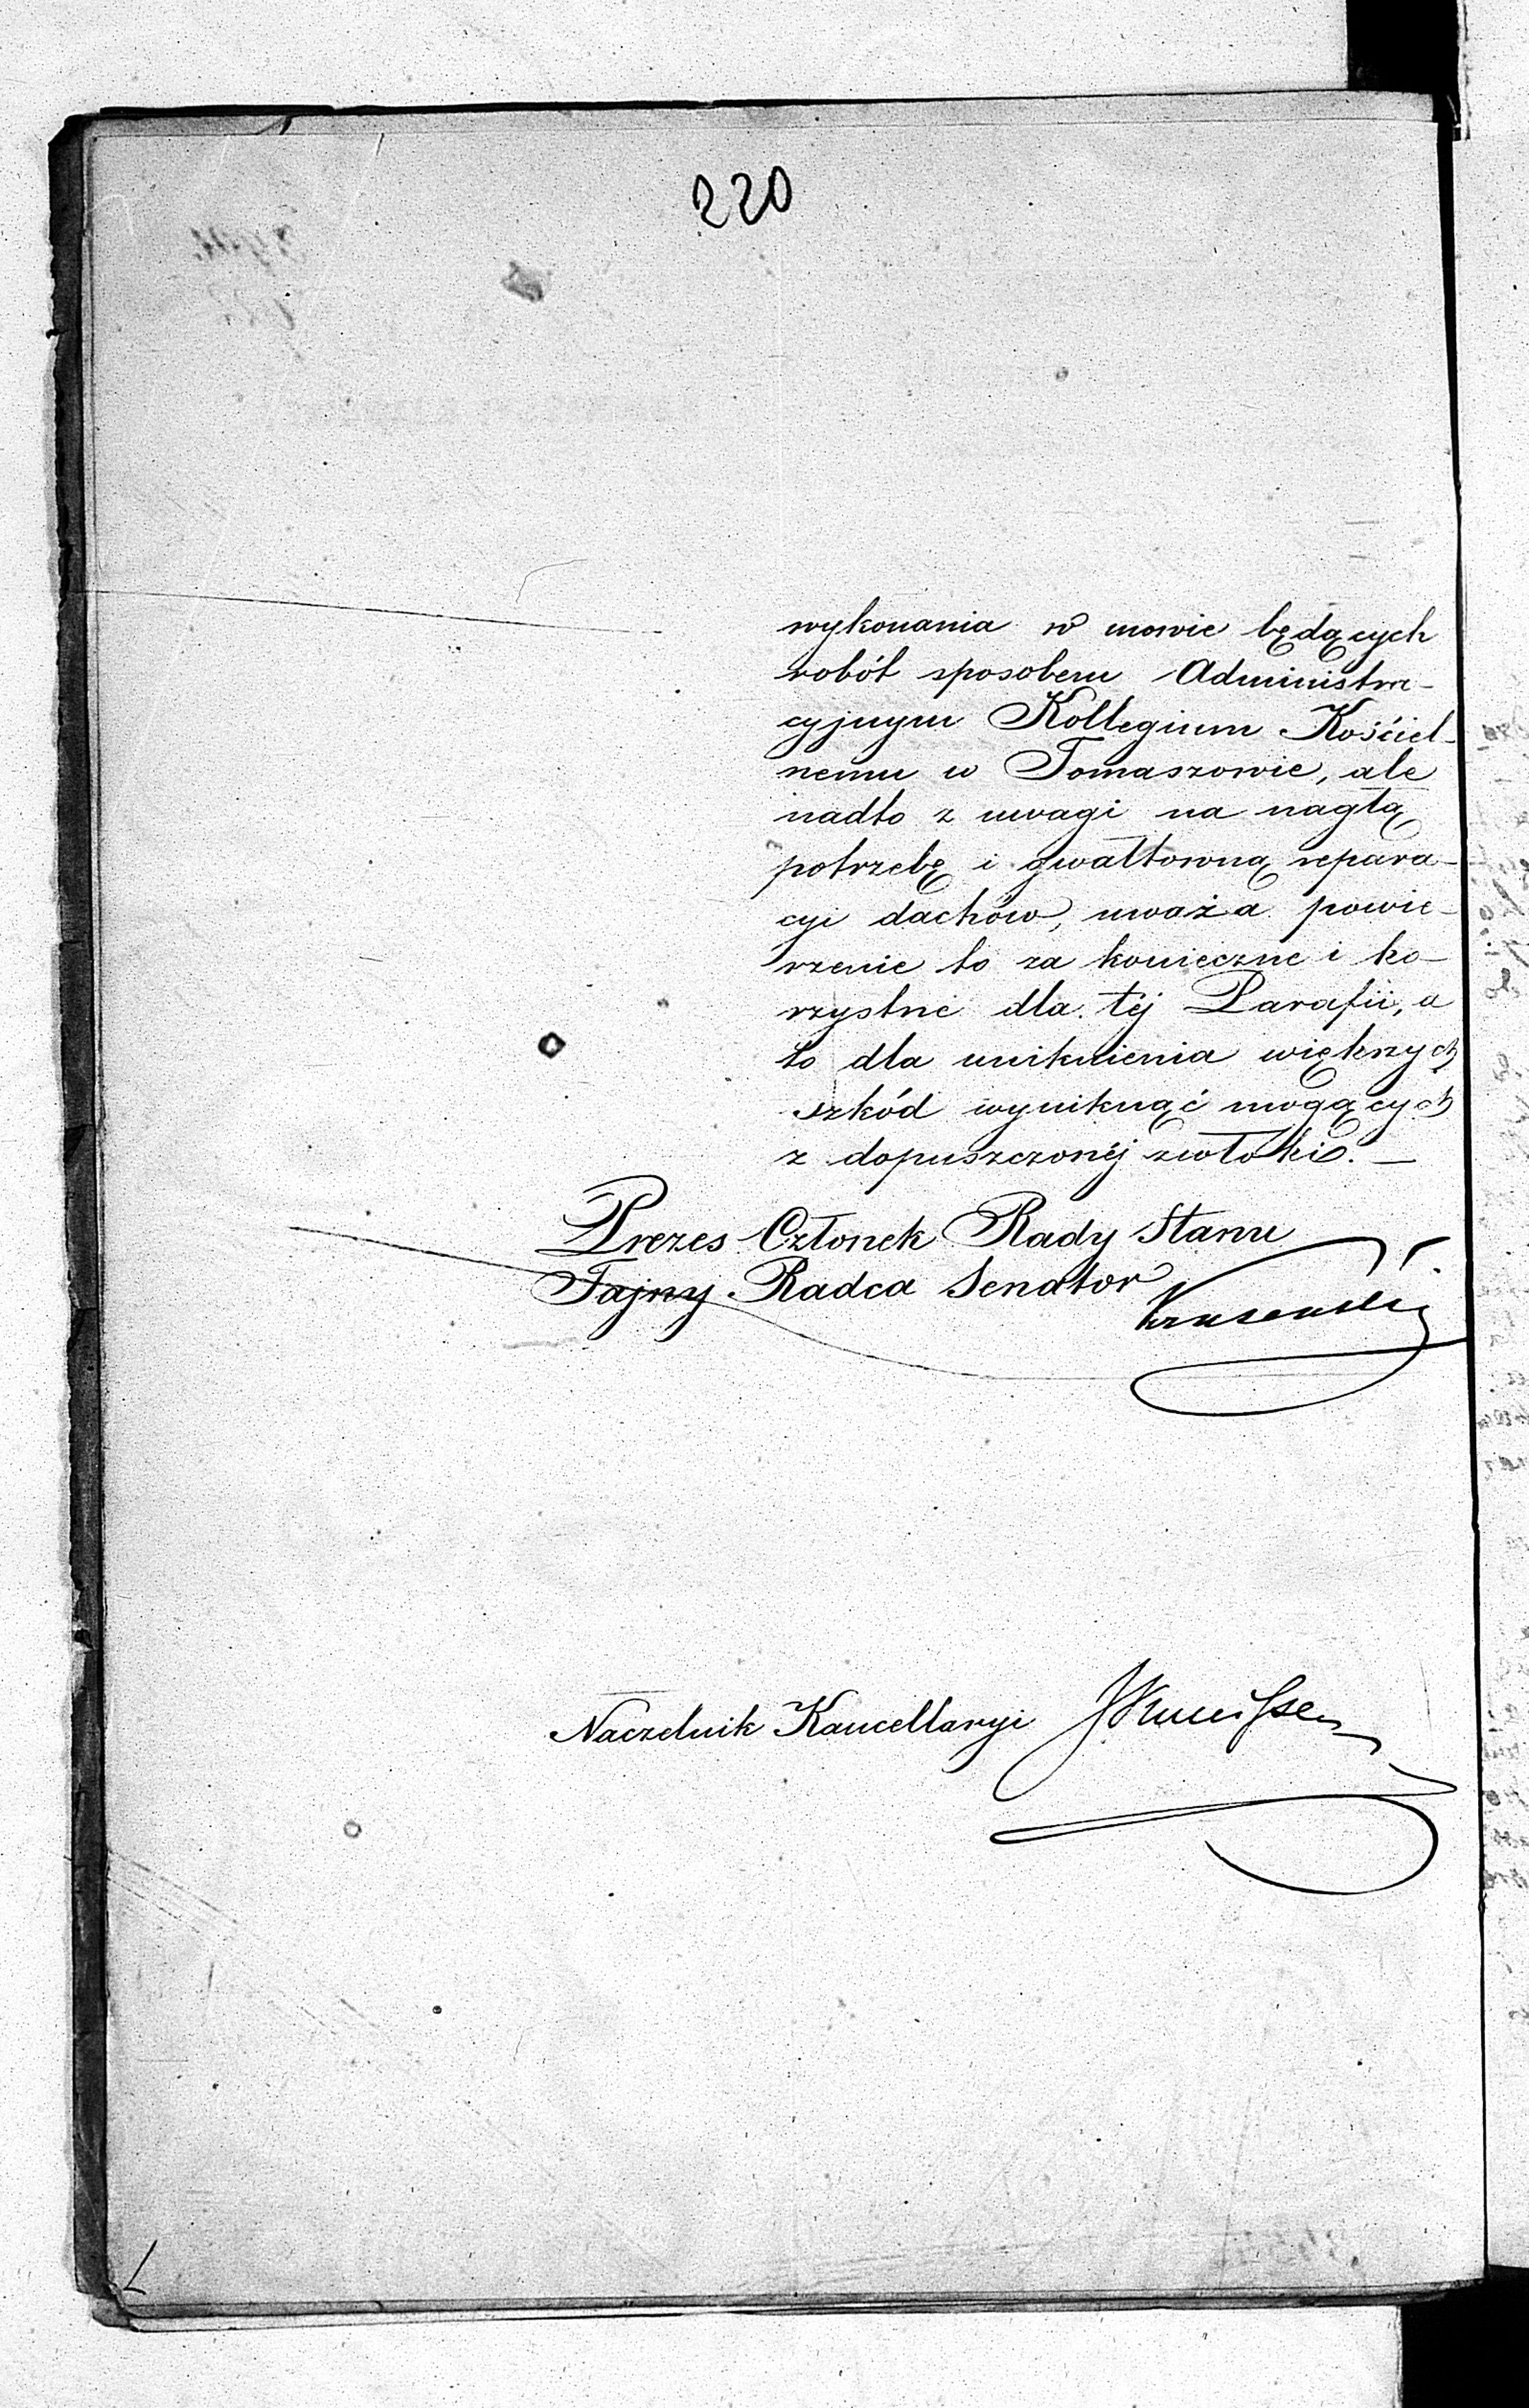 220
wykonania w mowie będących
robót sposobem Administra-
cyjnym Kollegium Kościel-
nemu w Tomaszowie, ale
nadto z uwagi na nagłą
potrzebę i gwałtowną repara-
cyi dachów, uważa powie-
rzenie to za konieczne i ko-
rzystne dla téj Parafii, a
to dla uniknienia większych
szkód wyniknąć mogących
z dopuszczonéj zwłoki. —
Prezes Członek Rady Stanu
Tajny Radca Senator
Naczelnik Kancellaryi